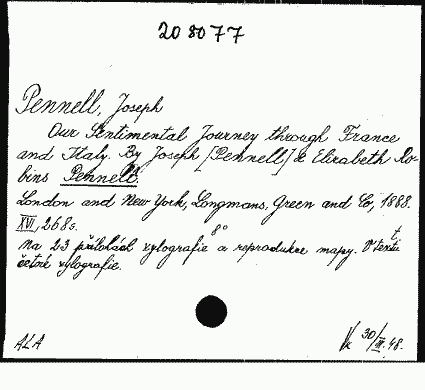 208077
Pennell, Joseph
Our Sentimental Journey through France
and Italy. By Joseph [Pennell] & Elizabeth Ro-
bins Pennell.
London and New York, Longmans, Green and Co, 1888.
XVI, 268 s. 8°
Na 23 přílohách xylografie a reprodukce mapy. V textu
četné xylografie.
ALA
Vk 30/III. 48.